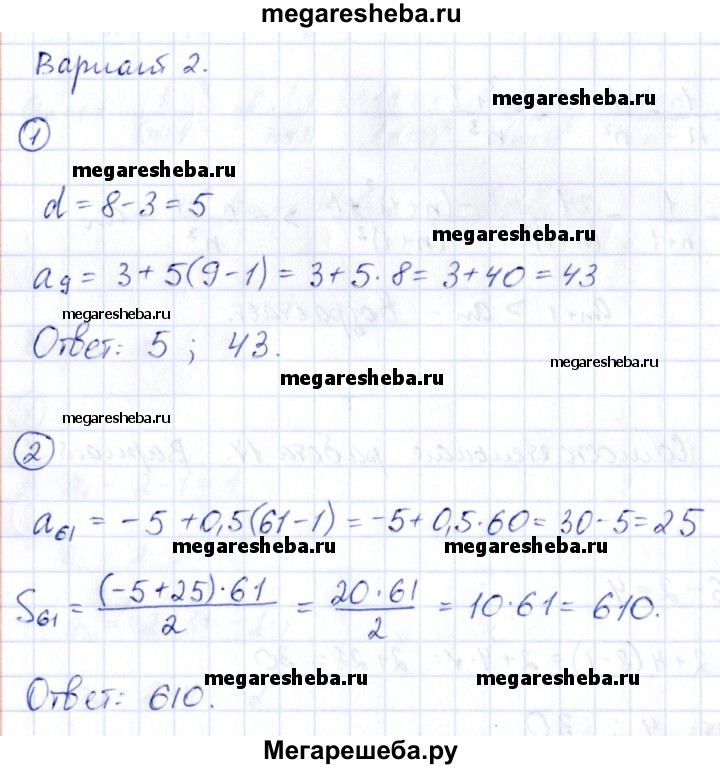 megaresheba.ru
Вариант 2.
megaresheba.ru
1
megaresheba.ru
d = 8 - 3 = 5
megaresheba.ru
a₉ = 3 + 5(9 - 1) = 3 + 5 · 8 = 3 + 40 = 43
megaresheba.ru
Ответ: 5 ; 43.
megaresheba.ru
megaresheba.ru
2
a₆₁ = -5 + 0,5(61 - 1) = -5 + 0,5 · 60 = 30 - 5 = 25
megaresheba.ru megaresheba.ru
S₆₁ = (-5 + 25) · 61 / 2 = 20 · 61 / 2 = 10 · 61 = 610.
megaresheba.ru megaresheba.ru
Ответ: 610.
Мегарешеба.ру